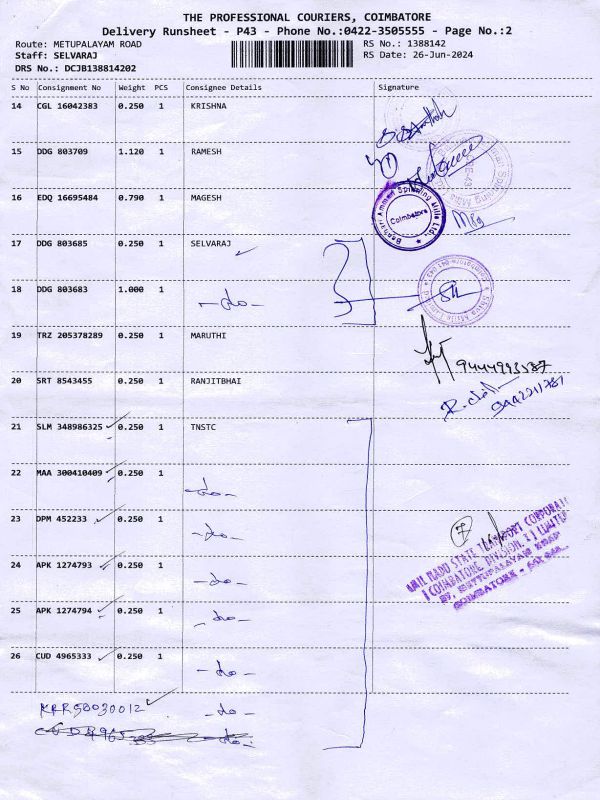 THE PROFESSIONAL COURIERS, COIMBATORE
Delivery Runsheet - P43 - Phone No.:0422-3505555 - Page No.:2
Route: METUPALAYAM ROAD RS No.: 1388142
Staff: SELVARAJ RS Date: 26-Jun-2024
DRS No.: DCJB138814202
S No Consignment No Weight PCS Consignee Details Signature
14 CGL 16042383 0.250 1 KRISHNA
15 DDG 803709 1.120 1 RAMESH
16 EDQ 16695484 0.790 1 MAGESH
Bannari Amman Spinning Mills Ltd.,
Coimbatore
17 DDG 803685 0.250 1 SELVARAJ
18 DDG 803683 1.000 1 -do-
19 TRZ 205378289 0.250 1 MARUTHI
9444993587
20 SRT 8543455 0.250 1 RANJITBHAI
21 SLM 348986325 0.250 1 TNSTC
22 MAA 300410409 0.250 1 -do-
23 DPM 452233 0.250 1 -do-
TAMIL NADU STATE TRANSPORT CORPORATION
(COIMBATORE DIVISION. I) LIMITED
37, METTUPALAYAM ROAD
COIMBATORE -
24 APK 1274793 0.250 1 -do-
25 APK 1274794 0.250 1 -do-
26 CUD 4965333 0.250 1 -do-
KRR50030012 -do-
-do-